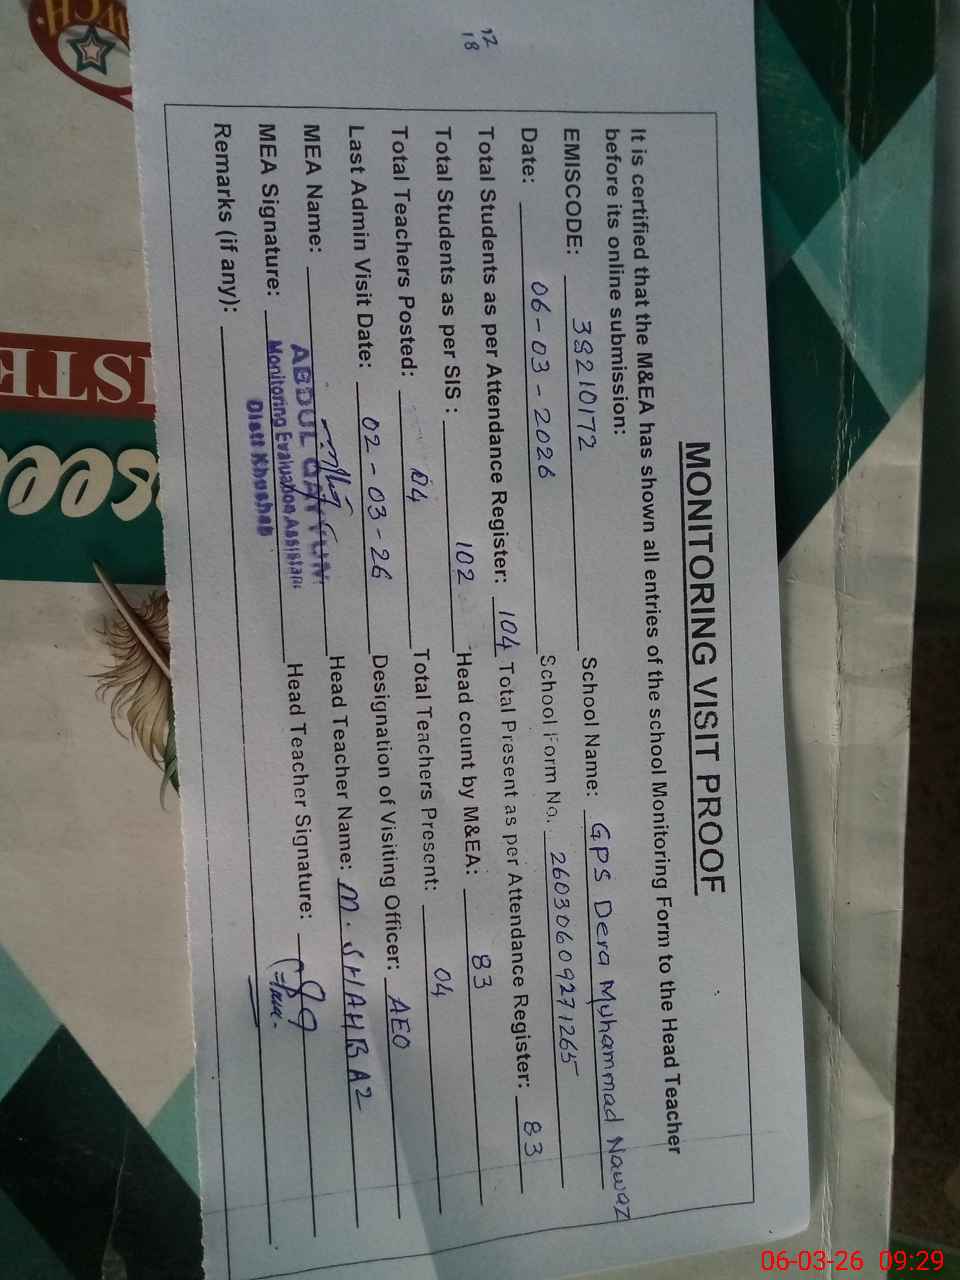 12
18
MONITORING VISIT PROOF
It is certified that the M&EA has shown all entries of the school Monitoring Form to the Head Teacher
before its online submission:
EMISCODE: 39210172 School Name: GPS Dera Muhammad Nawaz
Date: 06-03-2026 School Form No. 26030609271265
Total Students as per Attendance Register: 104 Total Present as per Attendance Register: 83
Total Students as per SIS: 102 Head count by M&EA: 83
Total Teachers Posted: 04 Total Teachers Present: 04
Last Admin Visit Date: 02-03-26 Designation of Visiting Officer: AEO
MEA Name: ABDUL QAYYUM Head Teacher Name: M. SHAHBAZ
MEA Signature: Monitoring Evaluation Assistant Head Teacher Signature:
Distt Khushab
Remarks (if any):
06-03-26 09:29